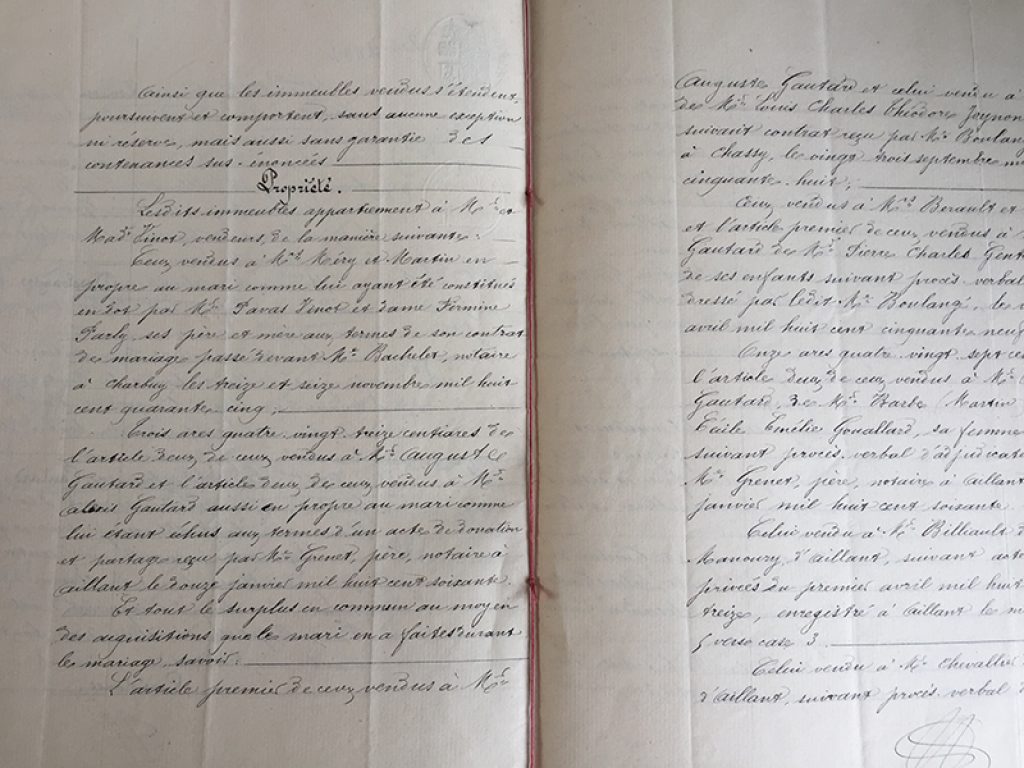 Ainsi que les immeubles vendus s'étendent,
poursuivent et comportent, sans aucune exception
ni réserve, mais aussi sans garantie des
contenances sus-énoncées
Propriété.
Lesdits immeubles appartiennent à Mr et
Made Vinot, vendeurs, de la manière suivante:
Ceux vendus à Mrs Méry et Martin en
propre au mari comme lui ayant été constitués
en dot par Mr Vinot et dame Firmine
Parly ses père et mère aux termes de son contrat
de mariage passé devant Me Bachelet, notaire
à Charbuy les treize et seize novembre mil huit
cent quarante cinq;
Trois ares quatre vingt treize centiares de
l'article deux de ceux vendus à Mr Auguste
Gautard et l'article deux des ceux vendus à Mr
Alexis Gautard aussi en propre au mari comme
lui étant échus aux termes d'un acte de donation
et partage reçu par Me Grenet, père, notaire à
Aillant le douze janvier mil huit cent soixante.
Et tout le surplus en commun au moyen
des acquisitions que le mari en a faites durant
le mariage, savoir:
L'article premier de ceux vendus à Mr
Auguste Gautard et celui vendu à
de Mr Louis Charles Théodore
suivant contrat reçu par Me Boulan
à Chassy, le vingt trois septembre m
cinquante-huit;
Ceux vendus à Mrs Berault et
et l'article premier de ceux vendus à
Gautard de Mr Pierre Charles Gau
de ses enfants suivant procès verbal
dressé par ledit Me Boulang, les
avril mil huit cent cinquante neuf
Onze ares quatre vingt sept ce
l'article deux de ceux vendus à Mr
Gautard, de Mr Barbe (Martin
Cécile Emélie Gouallard, sa femme
suivant procès-verbal d'adjudicat
Me Grenet, père, notaire à Aillant
janvier mil huit cent soixante.
Celui vendu à Mr Billiault d
Manoury, d'Aillant, suivant acte
privés du premier avril mil huit
treize, enregistré à Aillant le m
verso case 3
Celui vendu à Mr Chevallier
d'Aillant, suivant procès-verbal d